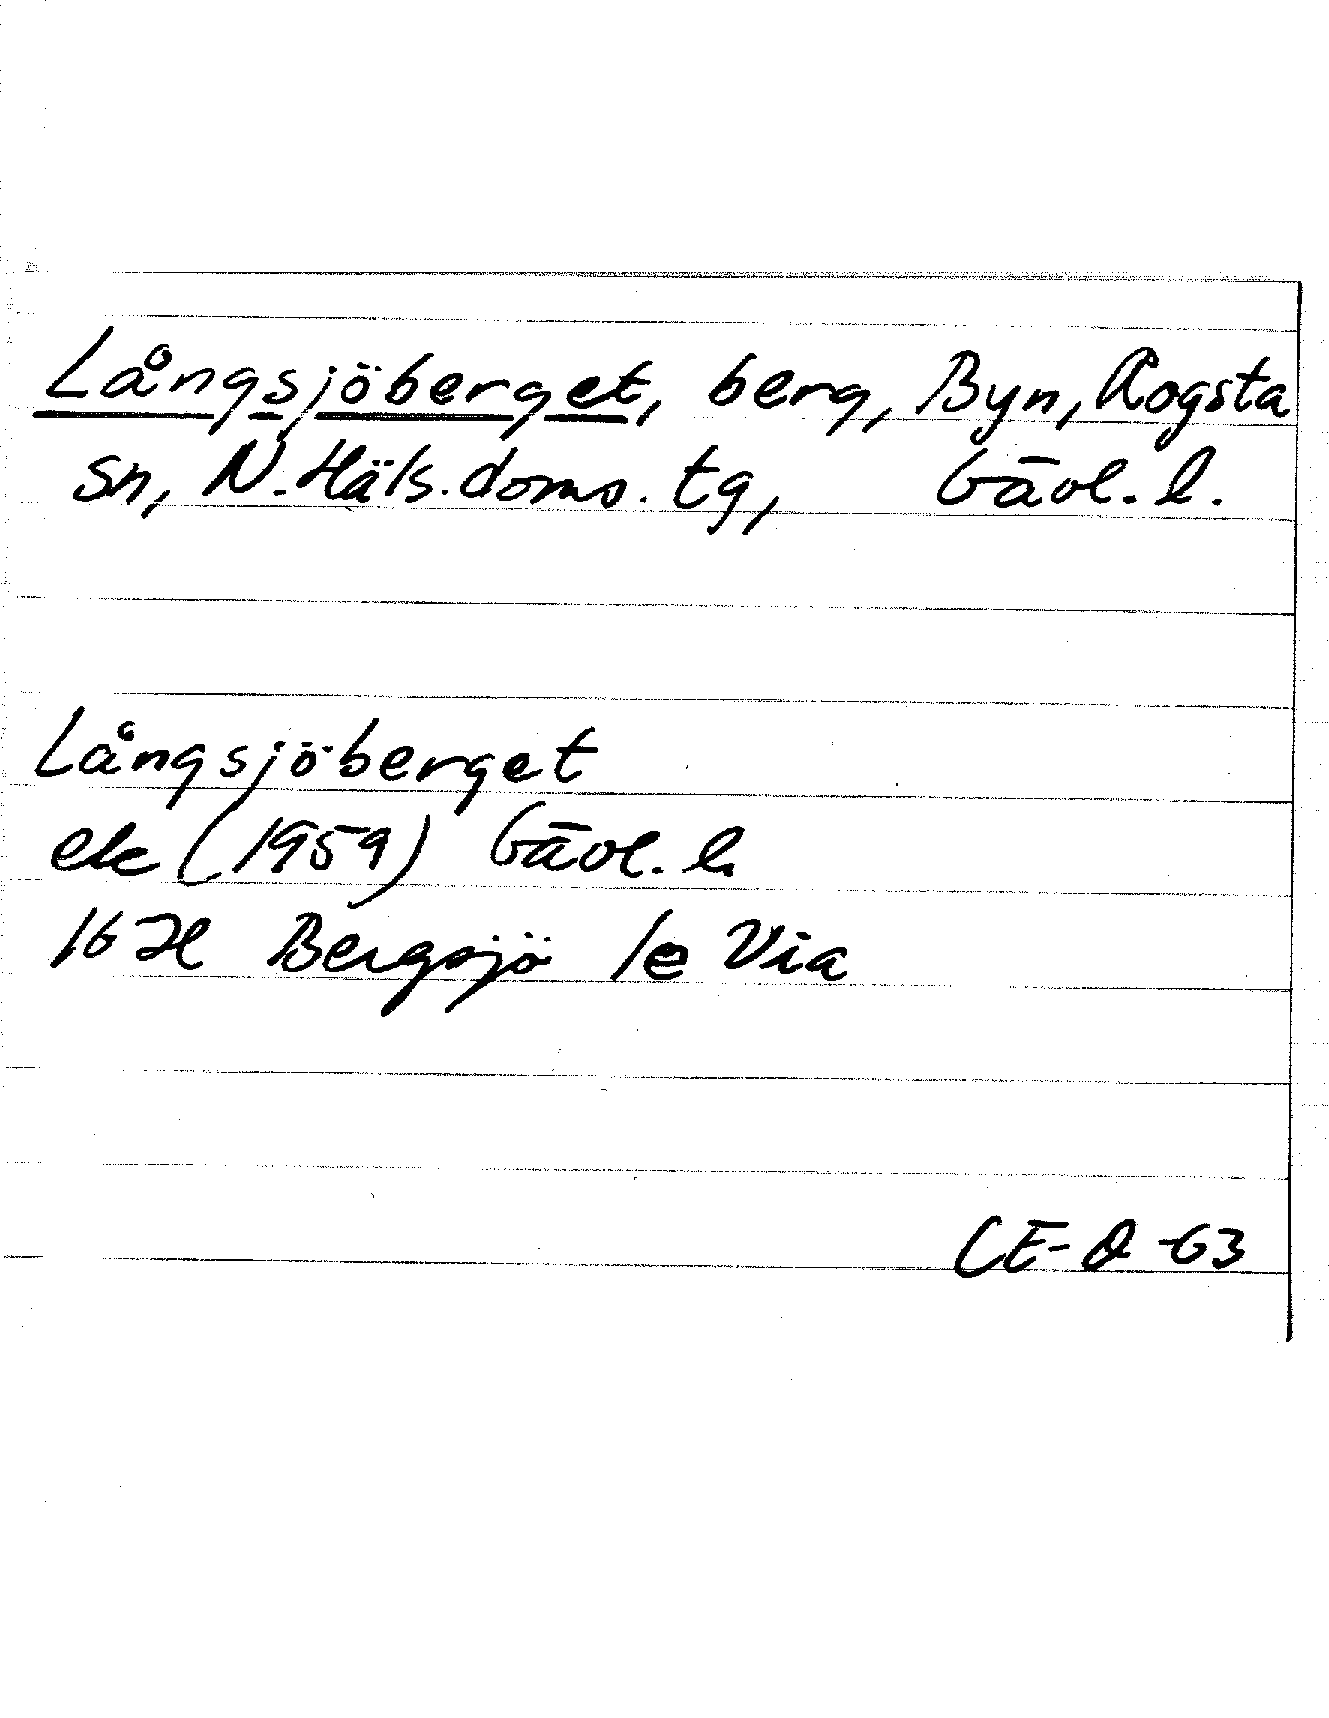 Långsjöberget, berg, Byn, Rogsta
sn, N. Häls. doms. tg, Gävl. l.
Långsjöberget
ek (1959) Gävl. l.
16 H Bergsjö 1e Via
CE-Ö -63